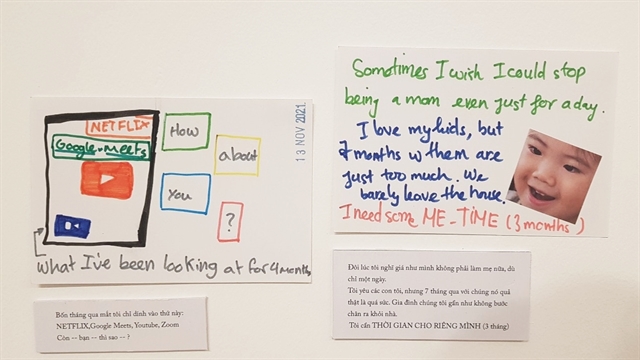 NETFLIX
Google Meets
How
about
You
?
13 NOV 2021.
What I've been looking at for 4 months
Bốn tháng qua mắt tôi chỉ dinh vào thứ này:
NETFLIX,Google Meets, Youtube, Zoom
Còn -- bạn -- thì sao -- ?
Sometimes I wish I could stop
being a mom even just for a day.
I love my kids, but
7 months w them are
just too much. We
barely leave the house.
I need some ME-TIME (3 months)
Đôi lúc tôi nghĩ giá như mình không phải làm mẹ nữa, dù
chỉ một ngày.
Tôi yêu các con tôi, nhưng 7 tháng qua với chúng nó quả
thật là quá sức. Gia đình chúng tôi gần như không bước
chân ra khỏi nhà.
Tôi cần THỜI GIAN CHO RIÊNG MÌNH (3 tháng)